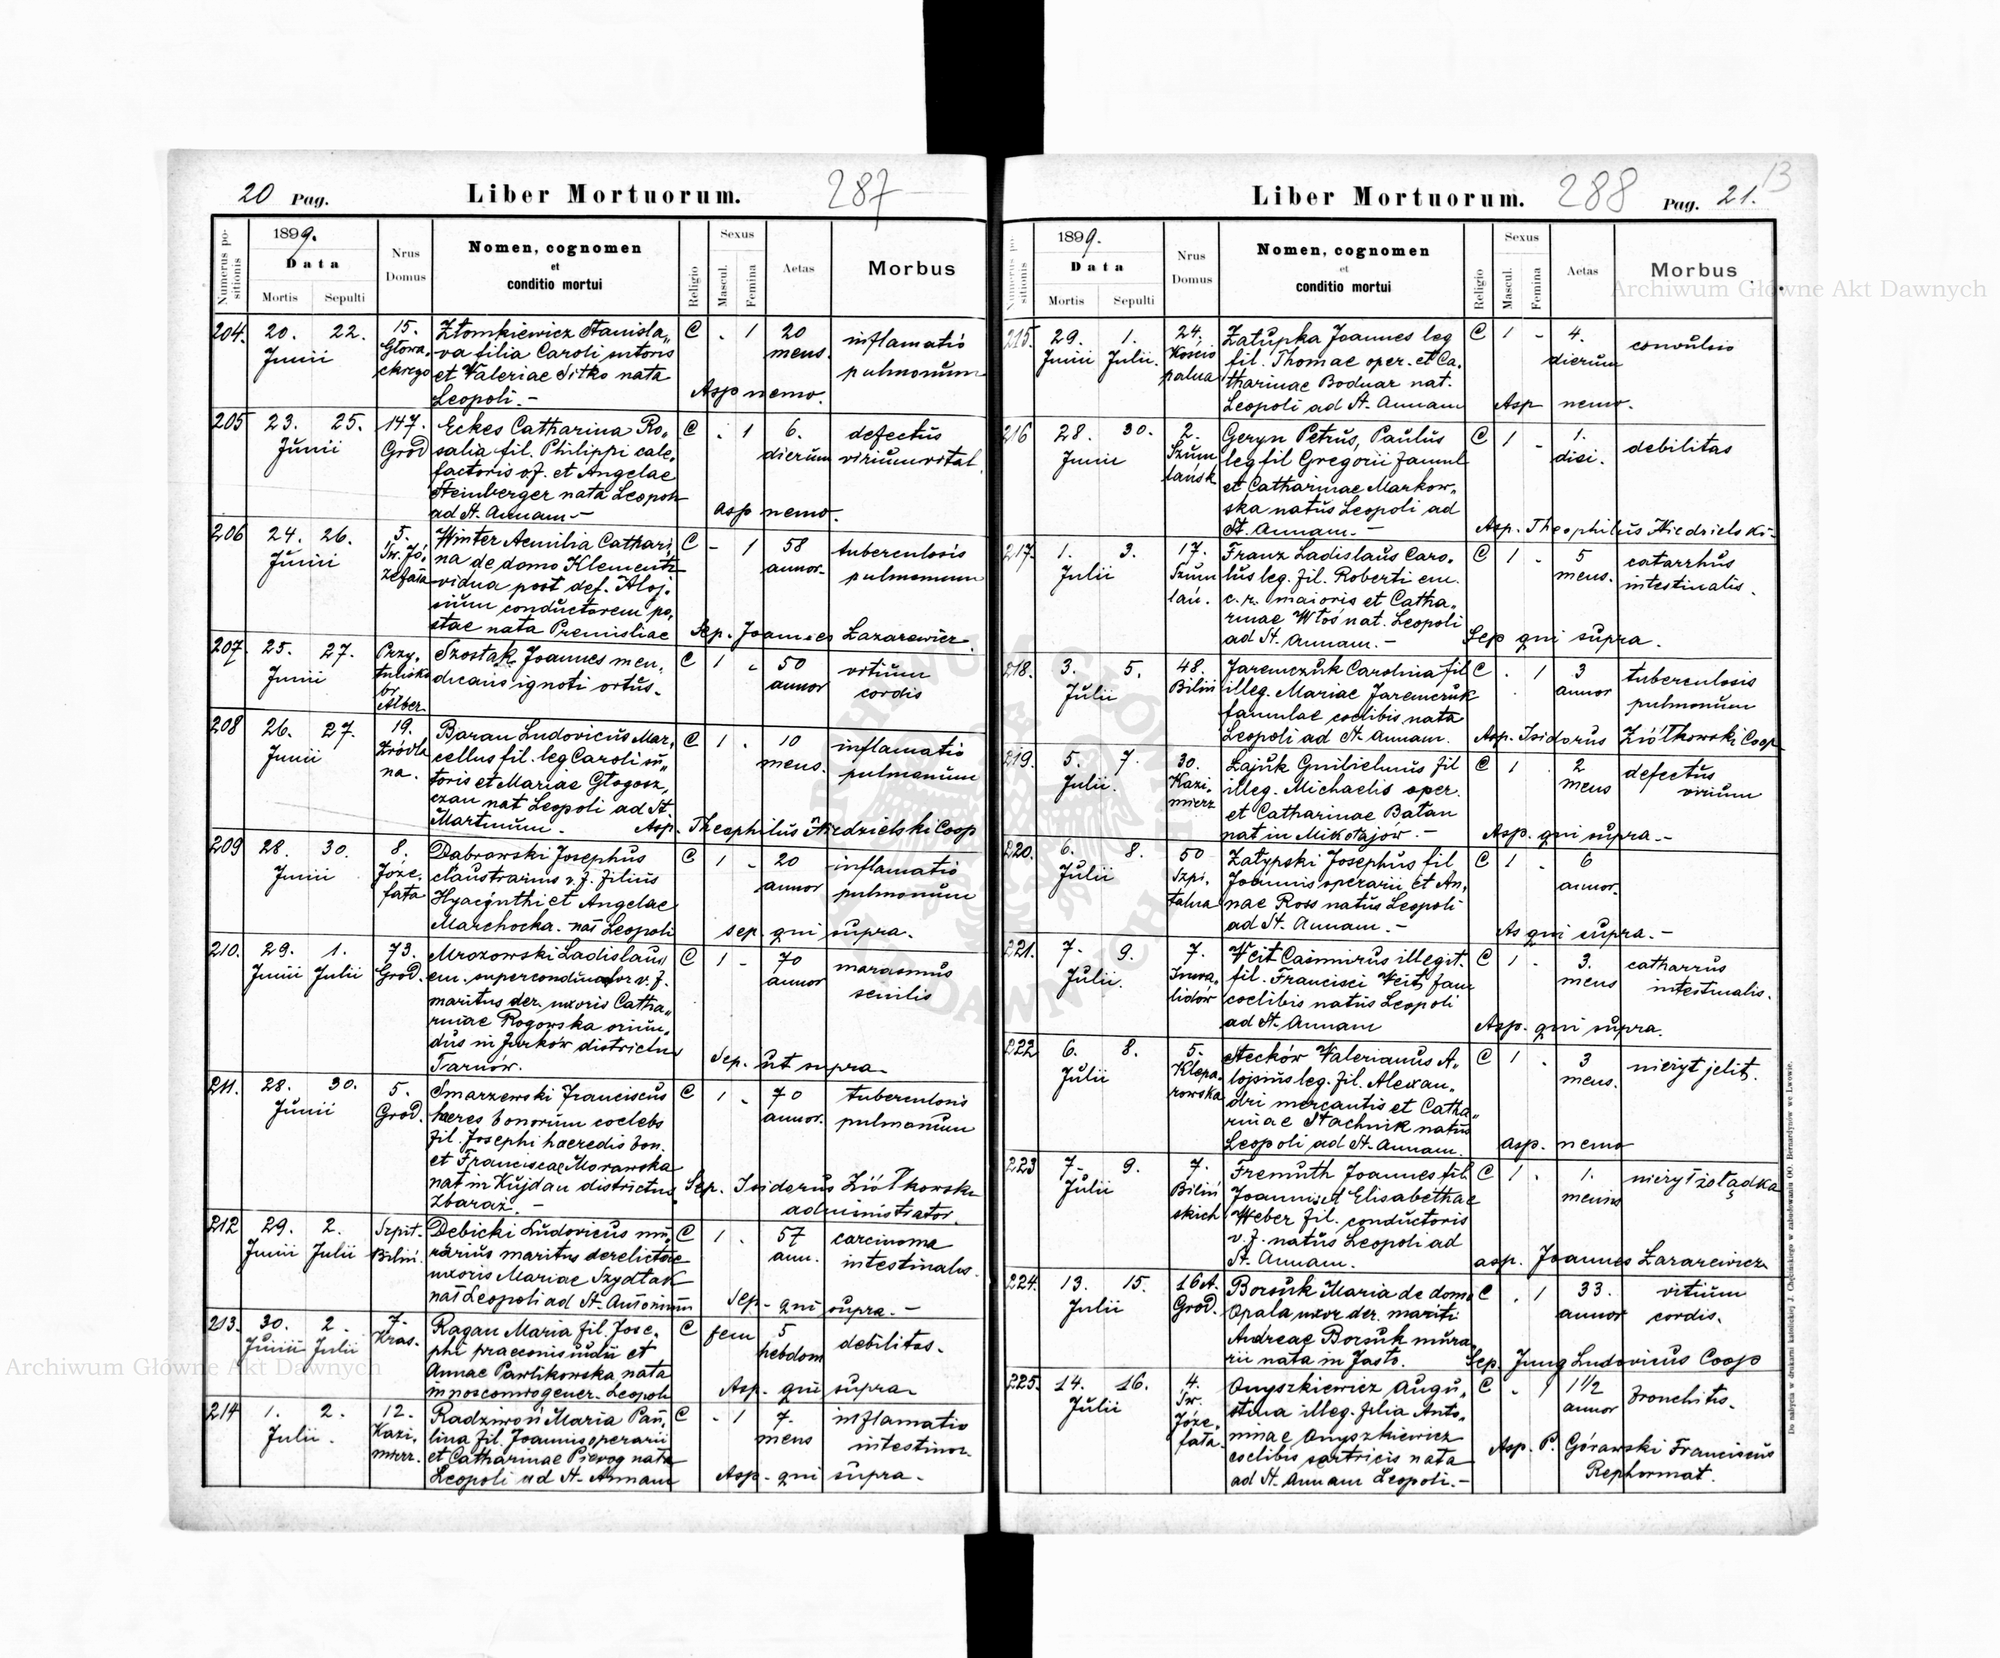 20 Pag. Liber Mortuorum. 287
Numerus positionis
1899.
Data
Mortis Sepulti
Nrus Domus
Nomen, cognomen
et
conditio mortui
Religio
Sexus
Mascul. Femina
Aetas
Morbus
204. 20. 22. Junii
15. Głowackiego
Złomkiewicz Stanisla„
va filia Caroli sutoris
et Valeriae Sitko nata
Leopoli. –
C - 1 20 mens.
inflamatio
pulmonum
Asp nemo.
205 23. 25. Junii
147. Gród
Eckes Catharina Ro„
salia fil. Philippi cale„
factoris v.f. et Angelae
Steinberger nata Leopoli
ad St. Annam –
C - 1 6. dierum
defectus
virium vital.
asp nemo.
206 24. 26. Junii
5. Św. Józefata
Winter Aemilia Cathari
na de domo Klementi
vidua post def. Aloj„
sium conductorem po„
stae nata Premisliae
C - 1 58 annor.
tuberculosis
pulmonum
Sep. Joannes Łazarewicz.
207. 25. 27. Junii
Przytulisko br Alber
Szostak Joannes men„
dicans ignoti ortus.
C 1 - 50 annor
vitium
cordis
208 26. 27. Junii
19. Źródlana.
Baran Ludovicus Mar„
cellus fil. leg Caroli su„
toris et Mariae Głogosz„
czan nat Leopoli ad St.
Martinum.
C 1 - 10 mens.
inflamatio
pulmonum
Asp. Theophilus Niedzielski Coop
209 28. 30. Junii
8. Józefata
Dabrowski Josephus
claustrarius v.f. filius
Hyacinthi et Angelae
Marchocka nat Leopoli
C 1 - 20 annor
inflamatio
pulmonum
sep. qui supra.
210. 29. 1. Junii Julii
73. Gród.
Mrozowski Ladislaus
em. superconductor v.f.
maritus der. uxoris Catha„
rinae Rogowska oriun„
dus in Jurków districtus
Tarnów.
C 1 - 70 annor
marasmus
senilis
Sep. ut supra.
211. 28. 30. Junii
5. Gród.
Smarzewski Franciscus
haeres bonorum coelebs
fil. Josephi haeredis bon.
et Franciscae Morawska
nat in Kujdan districtus
Zbaraż. –
C 1 - 70 annor.
tuberculosis
pulmonum
Sep. Isidorus Ziółkowski
administrator.
212 29. 2. Junii Julii
Szpit. Biliń.
Debicki Ludovicus mu„
rarius maritus derelictae
uxoris Mariae Szydłak
nat Leopoli ad St. Antonium
C 1 - 57 ann.
carcinoma
intestinalis.
Sep. qui supra. –
213. 30. 2. Junii Julii
7. Kras.
Ragan Maria fil. Jose„
phi praeconis iudii et
Annae Pawlikowska nata
in noscomio gener. Leopoli
C fem 5 hebdom
debilitas.
Asp. qui supra.
214 1. 2. Julii.
12. Kazimierz.
Radziwoń Maria Pau„
lina fil. Joannis operarii
et Catharinae Pierog nata
Leopoli ad St. Annam
C - 1 7. mens
inflamatio
intestinor.
Asp. qui supra.
Liber Mortuorum. 288 Pag. 21. 13
Numerus positionis
1899.
Data
Mortis Sepulti
Nrus Domus
Nomen, cognomen
et
conditio mortui
Religio
Sexus
Mascul. Femina
Aetas
Morbus
215. 29. 1. Junii Julii.
24. Kościopalna
Załupka Joannes leg
fil. Thomae oper. et Ca„
tharinae Bodnar nat.
Leopoli ad St. Annam
C 1 - 4. dierum
convulsio
Asp nemo.
216 28. 30. Junii
2. Szumlańsk
Geryn Petrus, Paulus
leg fil Gregorii famul
et Catharinae Markow„
ska natus Leopoli ad
St. Annam. –
C 1 - 1. diei.
debilitas
Asp. Theophilus Niedzielski.
217. 1. 3. Julii
17. Szumlań.
Franz Ladislaus Caro„
lus leg. fil. Roberti em.
c.r. maioris et Catha„
rinae Włoś nat. Leopoli
ad St. Annam. –
C 1 - 5 mens.
catarrhus
intestinalis.
Sep qui supra.
218. 3. 5. Julii
48. Biliń
Jaremczuk Carolina fil
illeg. Mariae Jaremczuk
famulae coelibis nata
Leopoli ad St. Annam.
C - 1 3 annor
tuberculosis
pulmonum
Asp. Isidorus Ziółkowski Coop
219. 5. 7. Julii.
30. Kazimierz
Łajuk Guilielmus fil
illeg. Michaelis oper.
et Catharinae Bałan
nat in Mikołajów. –
C 1 2 mens
defectus
virium
Asp. qui supra. –
220. 6. 8. Julii
50 Szpitalna
Załypski Josephus fil
Joannis operarii et An„
nae Ross natus Leopoli
ad St. Annam. –
C 1 - 6 annor.
As qui supra. –
221. 7. 9. Julii.
7. Inwalidów
Weit Casimirus illegit.
fil. Francisci Weit fam
coelibis natus Leopoli
ad St. Annam
C 1 - 3. mens
catharrus
intestinalis.
Asp. qui supra.
222 6. 8. Julii
5. Kleparowska
Stecków Valerianus A„
lojsius leg. fil. Alexan„
dri mercantis et Catha„
rinae Stachnik natus
Leopoli ad St. Annam.
C 1 - 3 mens.
nieżyt jelit.
asp. nemo
223 7. 9. Julii
7. Bilińskich
Fremuth Joannes fil.
Joannis et Elisabethae
Weber fil. conductoris
v.f. natus Leopoli ad
St. Annam.
C 1 - 1. mensis
nieżyt żołądka
asp. Joannes Łazarewicz
224. 13. 15. Julii
16A. Gród.
Borsuk Maria de domo
Opala uxor der. mariti
Andreae Borsuk mura
rii nata in Jasło.
C - 1 33. annor
vitium
cordis.
Sep. Jung Ludovicus Coop
225. 14. 16. Julii
4. Św. Józefata.
Onyszkiewicz Augu„
stina illeg. filia Anto„
ninae Onyszkiewicz
coelibis sartricis nata
ad St. Annam Leopoli. –
C - 1 1½ annor
bronchitis.
Asp. P. Górawski Franciscus
Rephormat.
Do nabycia w drukarni katolickiej J. Chęcińskiego w zabudowaniu OO. Bernardynów we Lwowie.
Archiwum Główne Akt Dawnych
Archiwum Główne Akt Dawnych
ARCHIWUM GŁÓWNE AKT DAWNYCH